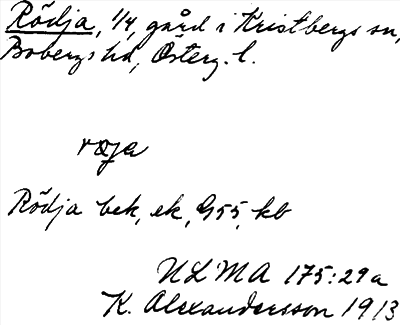 Rödja, 1/4, gård i Kristbergs sn,
Bobergs hd, Österg. l.
Rödja bek, ek, G55, kb
NLMA 175:29a
K. Alexandersson 1913